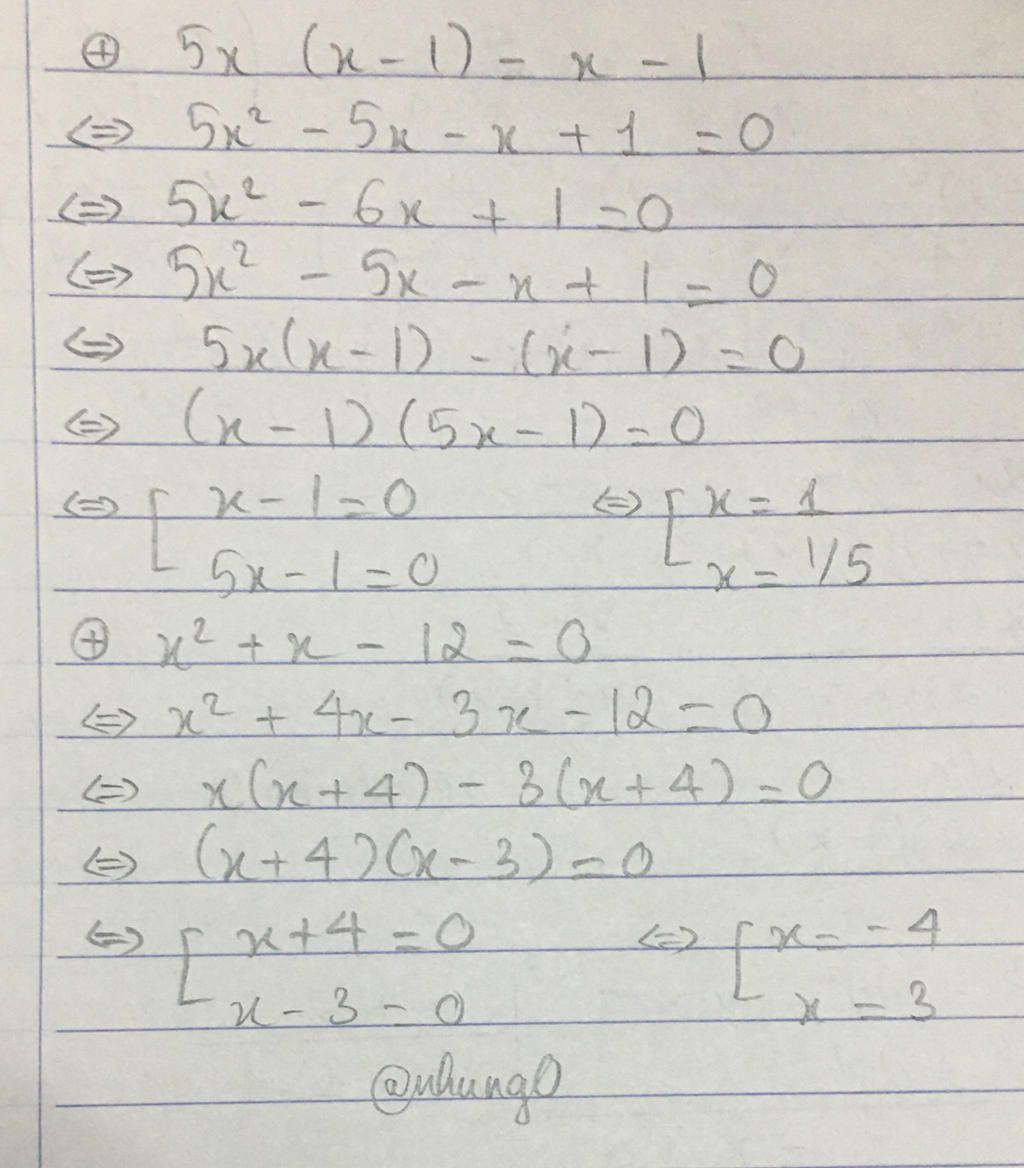 ⊕ 5x (x - 1) = x - 1
⇔ 5x² - 5x - x + 1 = 0
⇔ 5x² - 6x + 1 = 0
⇔ 5x² - 5x - x + 1 = 0
⇔ 5x(x - 1) - (x - 1) = 0
⇔ (x - 1)(5x - 1) = 0
⇔ [ x - 1 = 0 ⇔ [ x = 1
5x - 1 = 0 x = 1/5
⊕ x² + x - 12 = 0
⇔ x² + 4x - 3x - 12 = 0
⇔ x(x + 4) - 3(x + 4) = 0
⇔ (x + 4)(x - 3) = 0
⇔ [ x + 4 = 0 ⇔ [ x = - 4
x - 3 = 0 x = 3
@nhung0